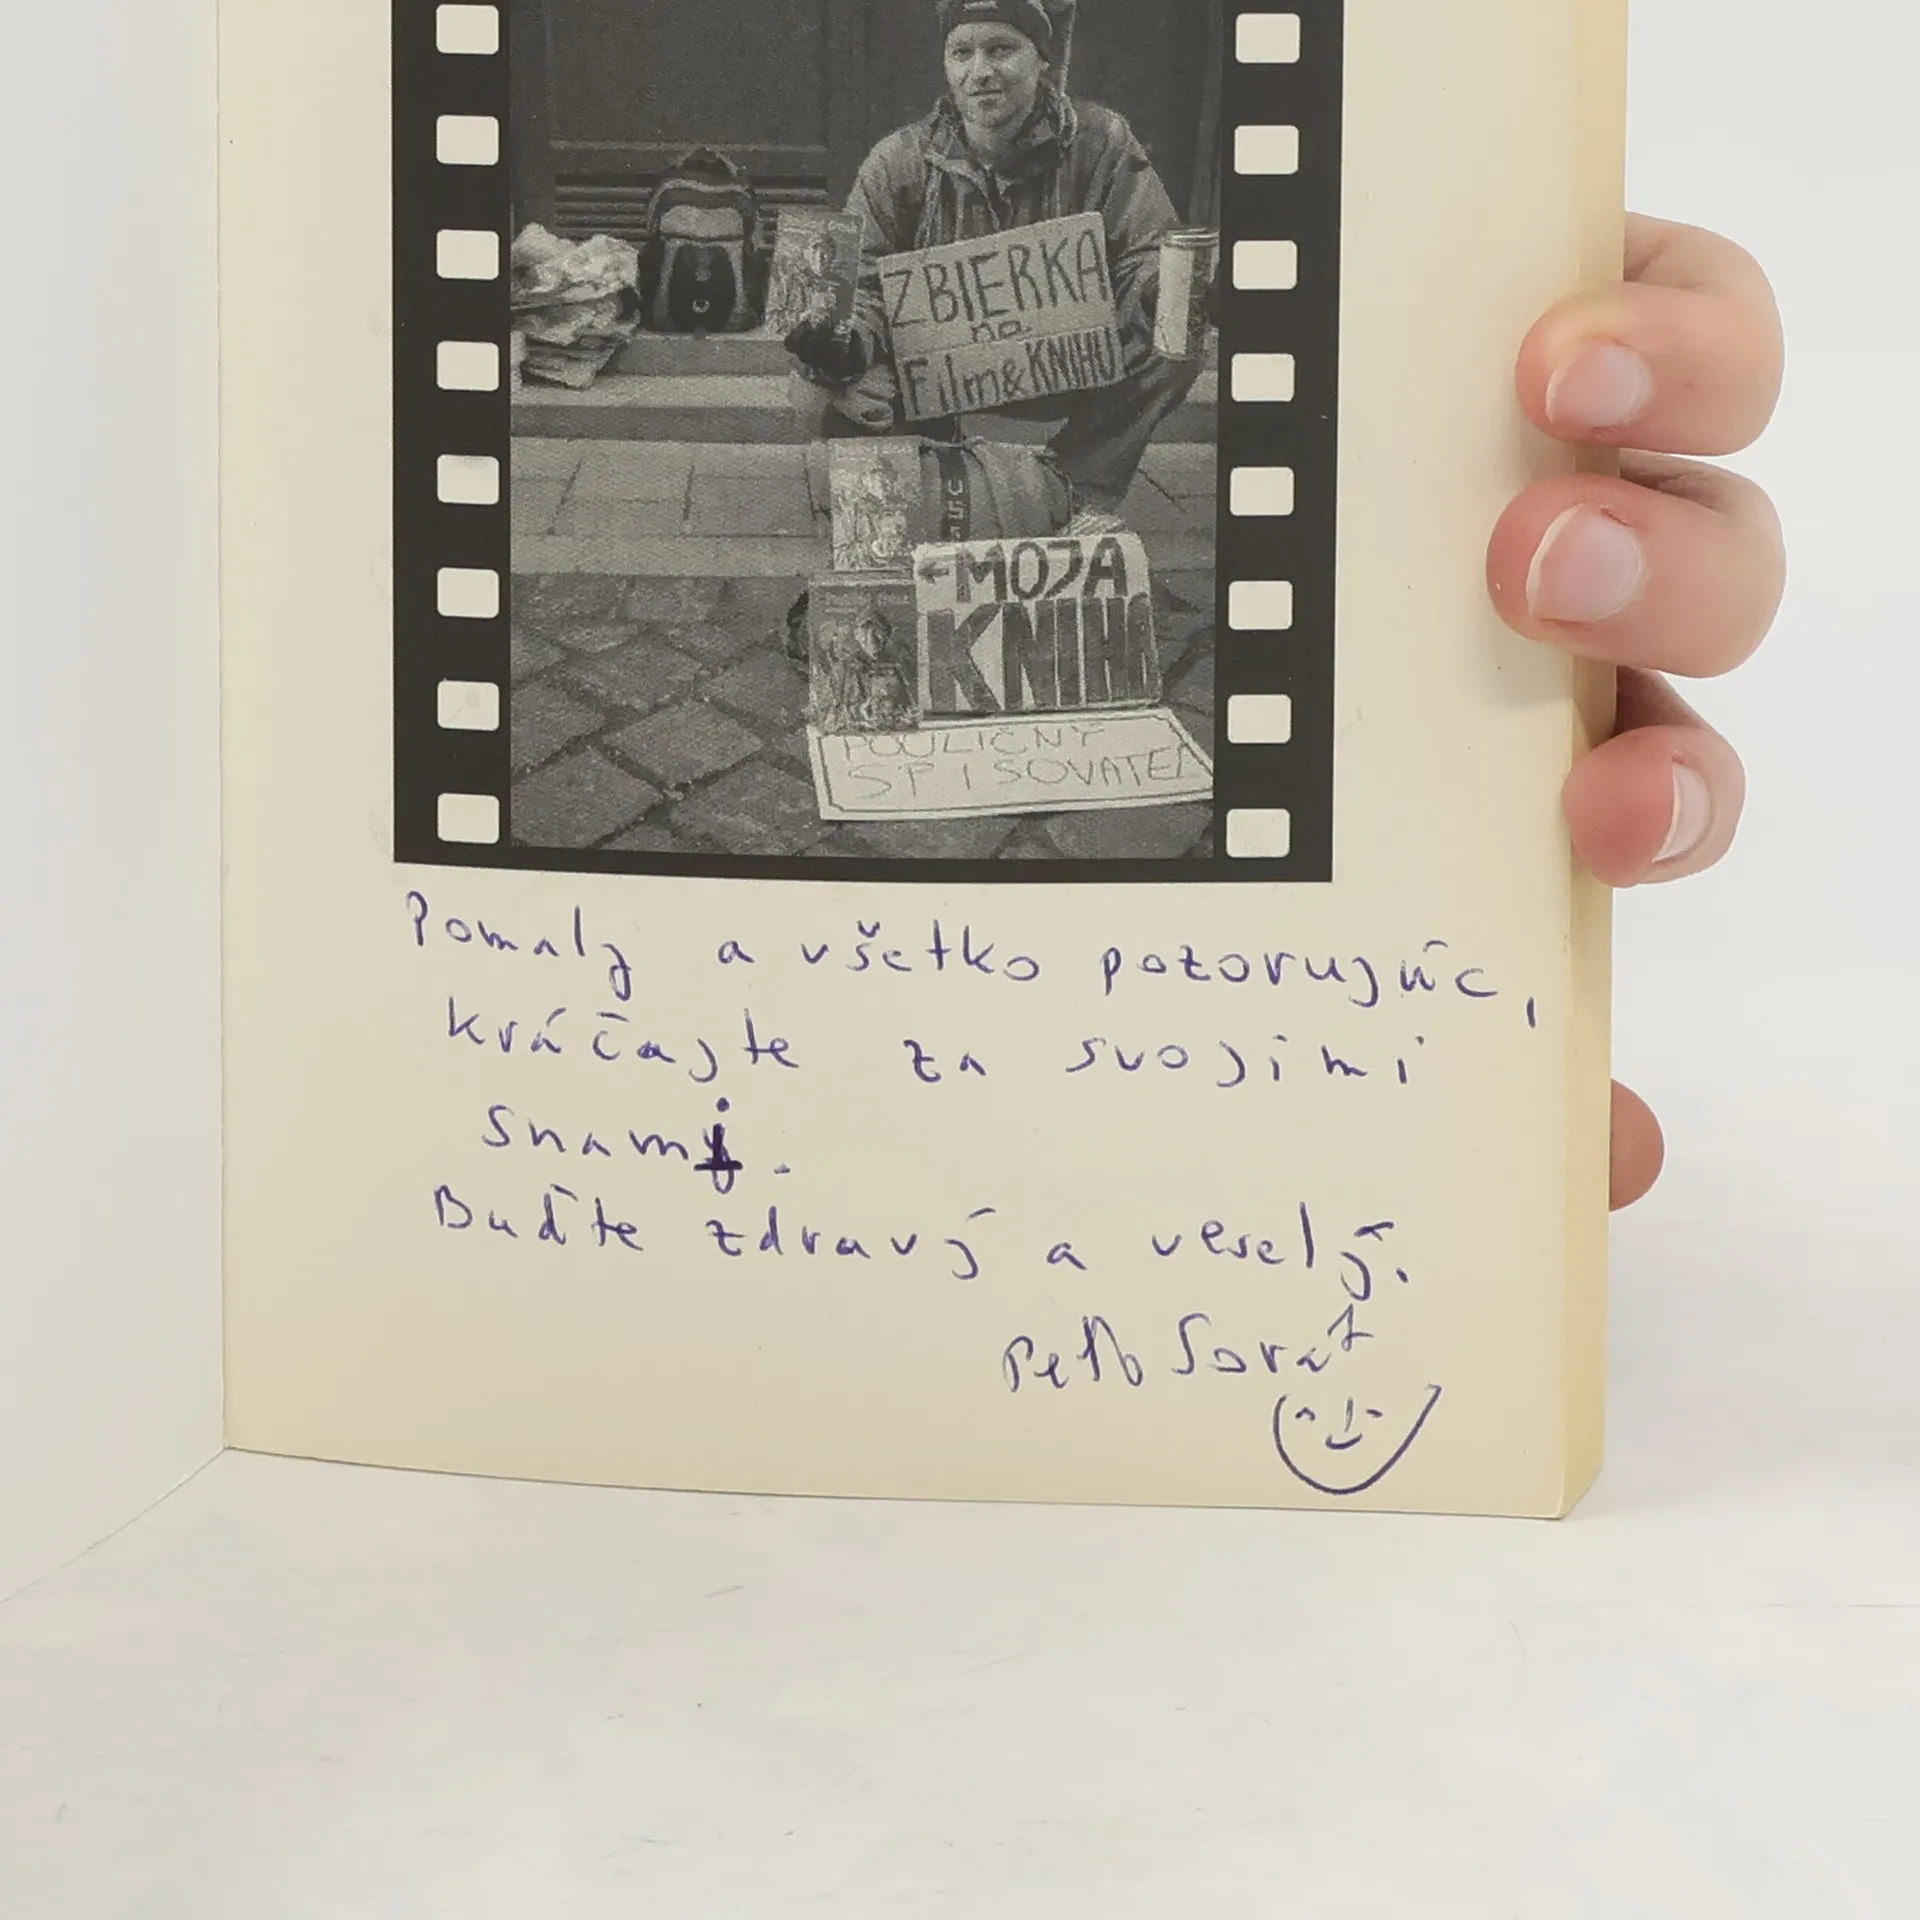 ZBIERKA
na
Film&KNIHU
←MOJA
KNIHA
POULIČNÝ
SPISOVATEĽ
Pomaly a všetko pozorujúc,
kráčajte za svojimi
snami.
Buďte zdravý a veselý.